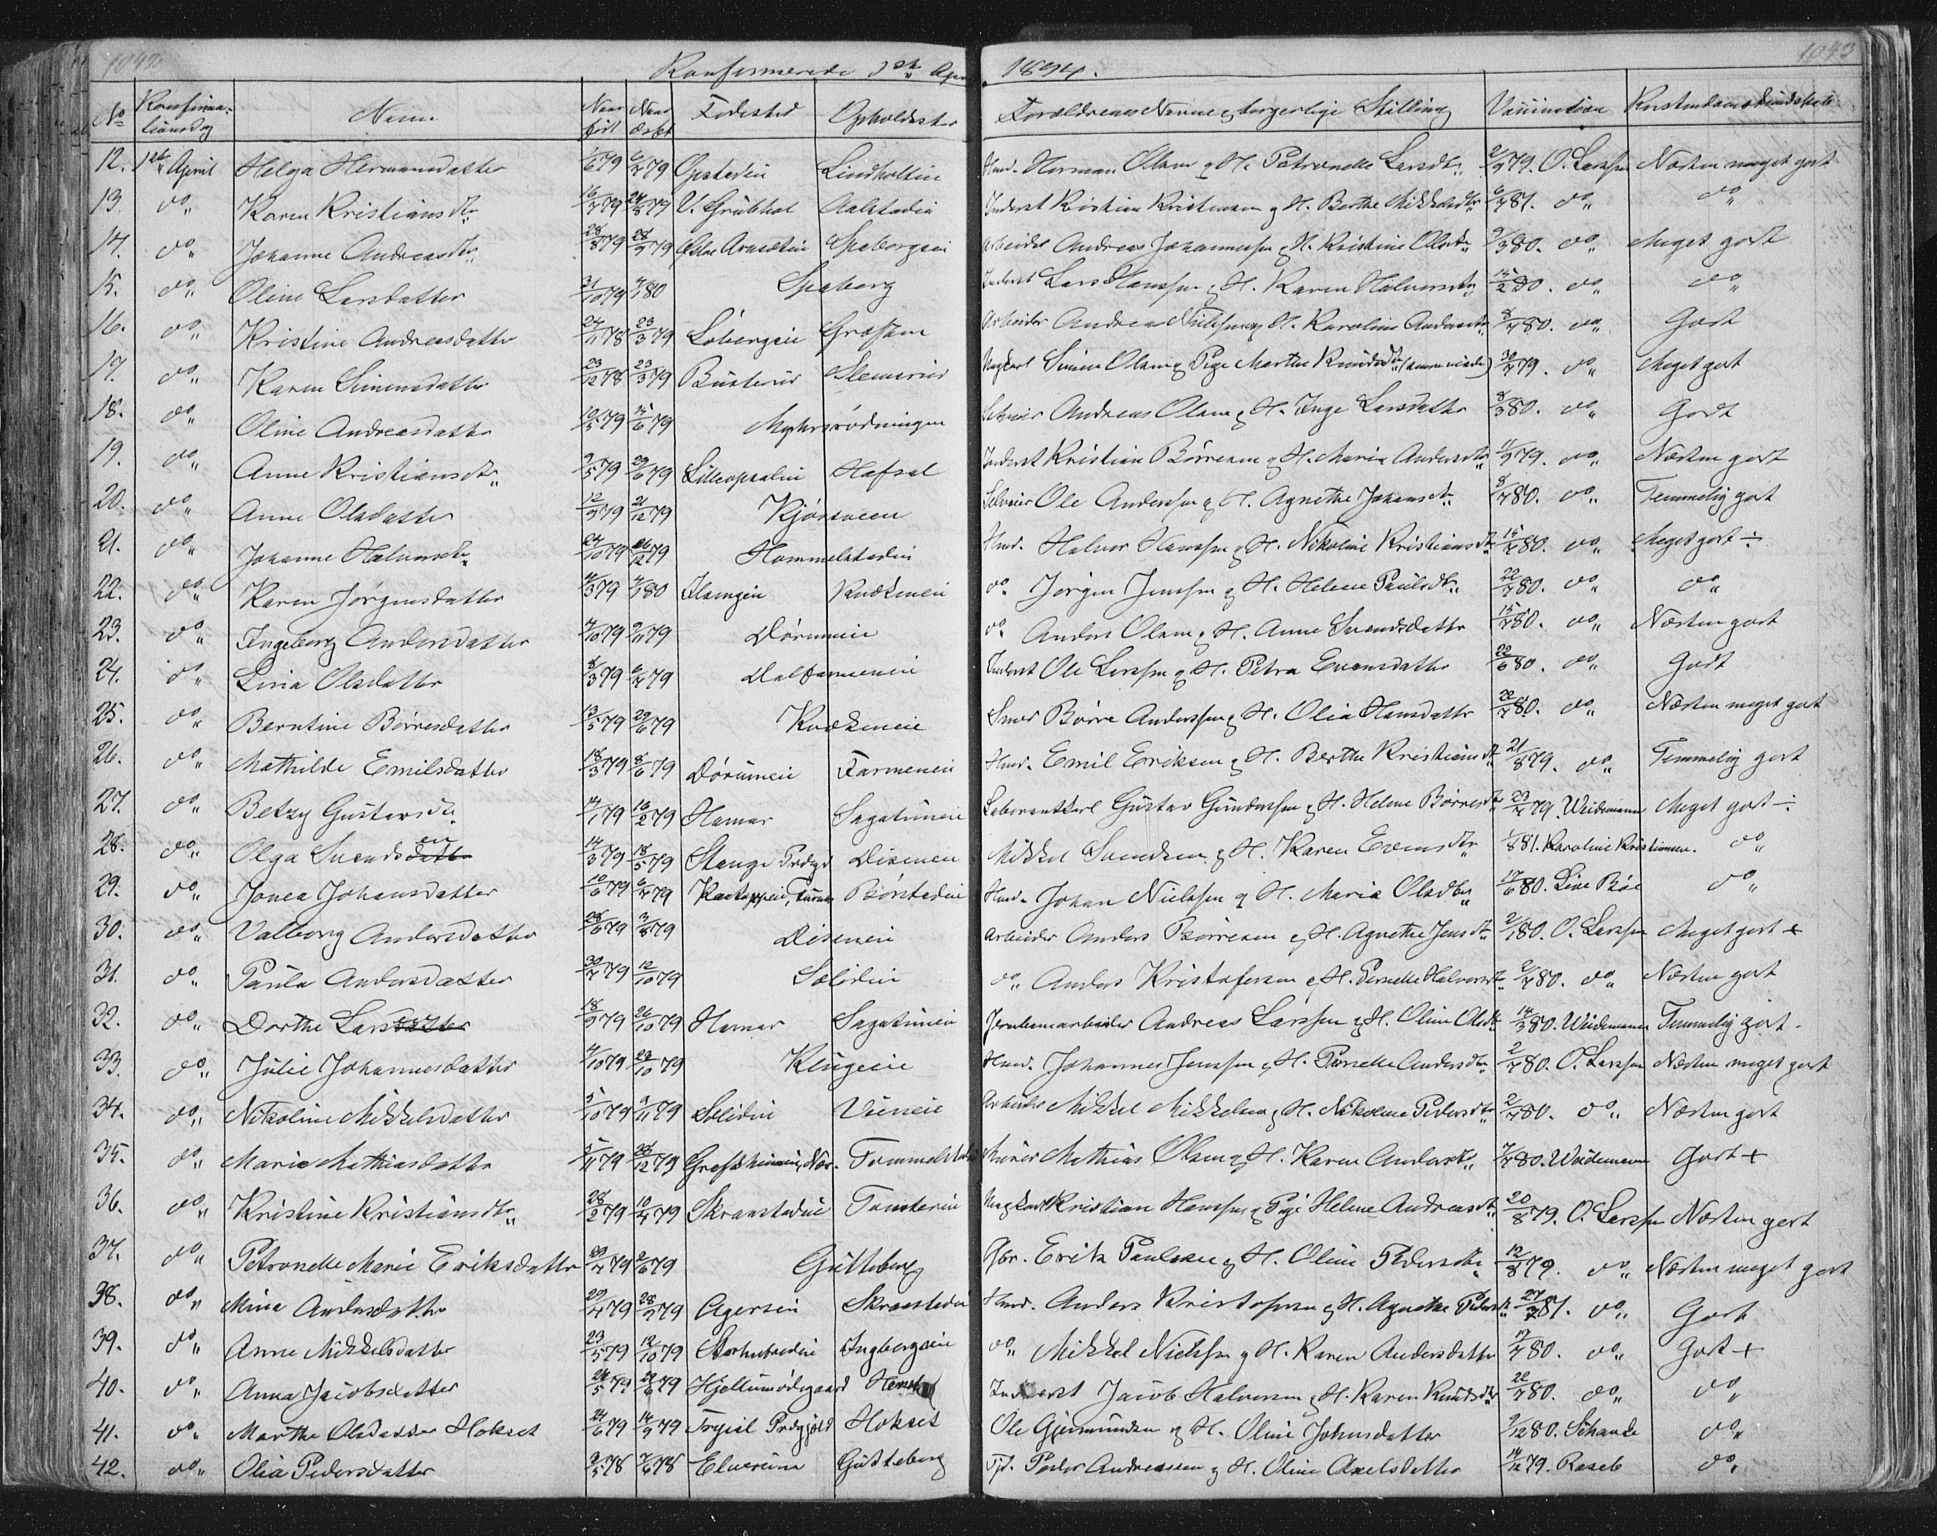 1042 1043
Konfirmerede 1ste April 1894.
No Konfirmationsdag Navn Naar født Naar døbt Fødested Opholdssted Forældrenes Navne og borgerlige Stilling Vaccination Kristendomskundskab
12. 1ste April Helga Hermansdatter 1/6 79 Opstadeie Lindholteie Huusm. Herman Olsen og H. Petronelle Larsdtr. 79. O. Larssen Næsten meget godt
13. do Karen Kristiansdtr. 79 79 V. Grubhol Aalstadeie Inderst Kristian Kristensen og H. Berthe Mikkelsdtr. 81. do do
14. do Johanne Andreasdtr. 28/8 79 28/9 79 Spaborgeie Arbeider Andreas Johannessen og H. Kristine Olsdtr. 80. do Meget godt
15. do Oline Larsdatter 21/10 79 80 Spaberg Inderst Lars Hanssen og H. Karen Halvorsdtr. 80. do do
16. do Kristine Andreasdatter 24/11 78 23/3 79 Løbergseie Græsen Arbeider Andreas Nilssen og H. Karoline Andersdtr. 80. do Godt
17. do Karen Simensdatter 23/12 78 23/3 79 Busterud Slemsrud Ungkarl Simen Olsen og Pige Marthe Knudsdtr. 30/7 79. do Meget godt
18. do Oline Andreasdatter 10/5 79 15/6 79 Myhrsrødningen Selveier Andreas Olsen og H. Inge Larsdatter 8/3 80. do Godt
19. do Anne Kristiansdtr. 9/5 79 29/6 79 Lilleopsaleie Hafsal Inderst Kristian Børresen og H. Maria Andersdtr. 11/9 79. do Næsten godt
20. do Anne Olsdatter 12/9 79 21/12 79 Kjørsveen Selveier Ole Anderssen og H. Agnethe Johansdtr. 8/7 80. do Temmelig godt
21. do Johanne Halvorsdtr. 24/10 79 26/12 79 Hommelstadeie Huusm. Halvor Hanssen og H. Nikoline Kristiansdtr. 80. do Meget godt ÷
22. do Karen Jørgensdatter 79 80 Kvækeneie do Jørgen Jenssen og H. Helene Paulsdtr. 22/7 80. do do
23. do Ingeborg Andersdatter 79 79 Dørumeie do Anders Olsen og H. Anne Svendsdatter 15/7 80. do Næsten godt
24. do Lina Olsdatter 79 79 Dalfarmeneie Inderst Ole Larssen og H. Petra Evensdatter 22/6 80. do Godt
25. do Berntine Børresdatter 13/5 79 29/6 79 Kvækeneie Smed Børre Anderssen og H. Olia Hansdatter 22/7 80. do Næsten meget godt
26. do Mathilde Emilsdatter 18/3 79 8/6 79 Dørumeie Farmeneie Huusm. Emil Eriksen og H. Berthe Kristiansdtr. 21/8 79. do Temmelig godt
27. do Betzy Gustavsdtr. 14/1 79 16/2 79 Hamar Sagatuneie Gustav Gundersen og H. Helene Børresdtr. 79. Weidemann Meget godt ÷
28. do Olga Svendsen 14/3 79 18/5 79 Stange Prdgd Diseneie Mikkel Svendsen og H. Karen Evensdtr. 1/8 81. Karoline Kristiansen. do
29. do Jonea Johansdatter 10/6 79 79 Børstadeie Huusm. Johan Nielssen og H. Maria Olsdtr. 17/6 80. Line Bøe do
30. do Valborg Andersdatter 28/6 79 3/8 79 Diseneie Arbeider Anders Børresen og H. Agnethe Jensdtr. 80. O. Larssen Meget godt +
31. do Paula Andersdatter 30/7 79 12/10 79 Solideie do Anders Kristofersen og H. Pernelle Halvorsdtr. 2/7 80. do Næsten godt
32. do Dorthe Larssen 18/9 79 26/10 79 Hamar Sagatuneie Jernbanearbeider Andreas Larssen og H. Oline Olsdtr. 14/3 80. Weidemann Temmelig godt.
33. do Julie Johannesdatter 4/10 79 79 Klugeeie Huusm. Johannes Jenssen og H. Pernelle Andersdtr. 2/7 80. O. Larssen Næsten meget godt
34. do Nikoline Mikkelsdatter 5/10 79 9/11 79 Solideie Vieneie Arbeider Mikkel Mikkelsen og H. Nikoline Pedersdtr. 2/7 80. do Næsten godt
35. do Marie Mathiasdatter 5/11 79 79 Murer Mathias Olsen og H. Karen Andersdtr. 7/7 80. Weidemann Godt +
36. do Kristine Kristiansdtr. 28/2 79 10/4 79 Skramstadeie Tomtereie Ungkarl Kristian Hanssen og Pige Helene Andreasdtr. 20/8 79. O. Larssen Næsten godt
37. do Petronelle Marie Eriksdatter 29/4 79 2/6 79 Gutteberg Gbr. Erik Paulsen og H. Oline Pedersdtr. 12/8 79. do Næsten meget godt
38. do Mina Andersdatter 29/4 79 28/9 79 Agerseie Skramstadeie Huusm. Anders Kristofersen og H. Agnethe Pedersdtr. 81. do Godt
39. do Anne Mikkelsdatter 23/5 79 12/10 79 Storhubredeie Ingbergseie do Mikkel Nielssen og H. Karen Andersdatter 17/7 80. do Godt +
40. do Anna Jacobsdatter 26/5 79 79 Hjellumødegaard Inderst Jacob Halversen og H. Karen Knudsdtr. 22/7 80. do do
41. do Marthe Olsdatter Hokset 24/6 79 14/9 79 Trysil Prdgjeld Hokset Ole Gjermundsen og H. Oline Johnsdatter 9/12 80. Schande do
42. do Olia Pedersdatter 9/5 78 7/6 78 Elverum Gutteberg Tjr. Peder Andreassen og H. Oline Axelsdatter 14/12 79. Raseb do